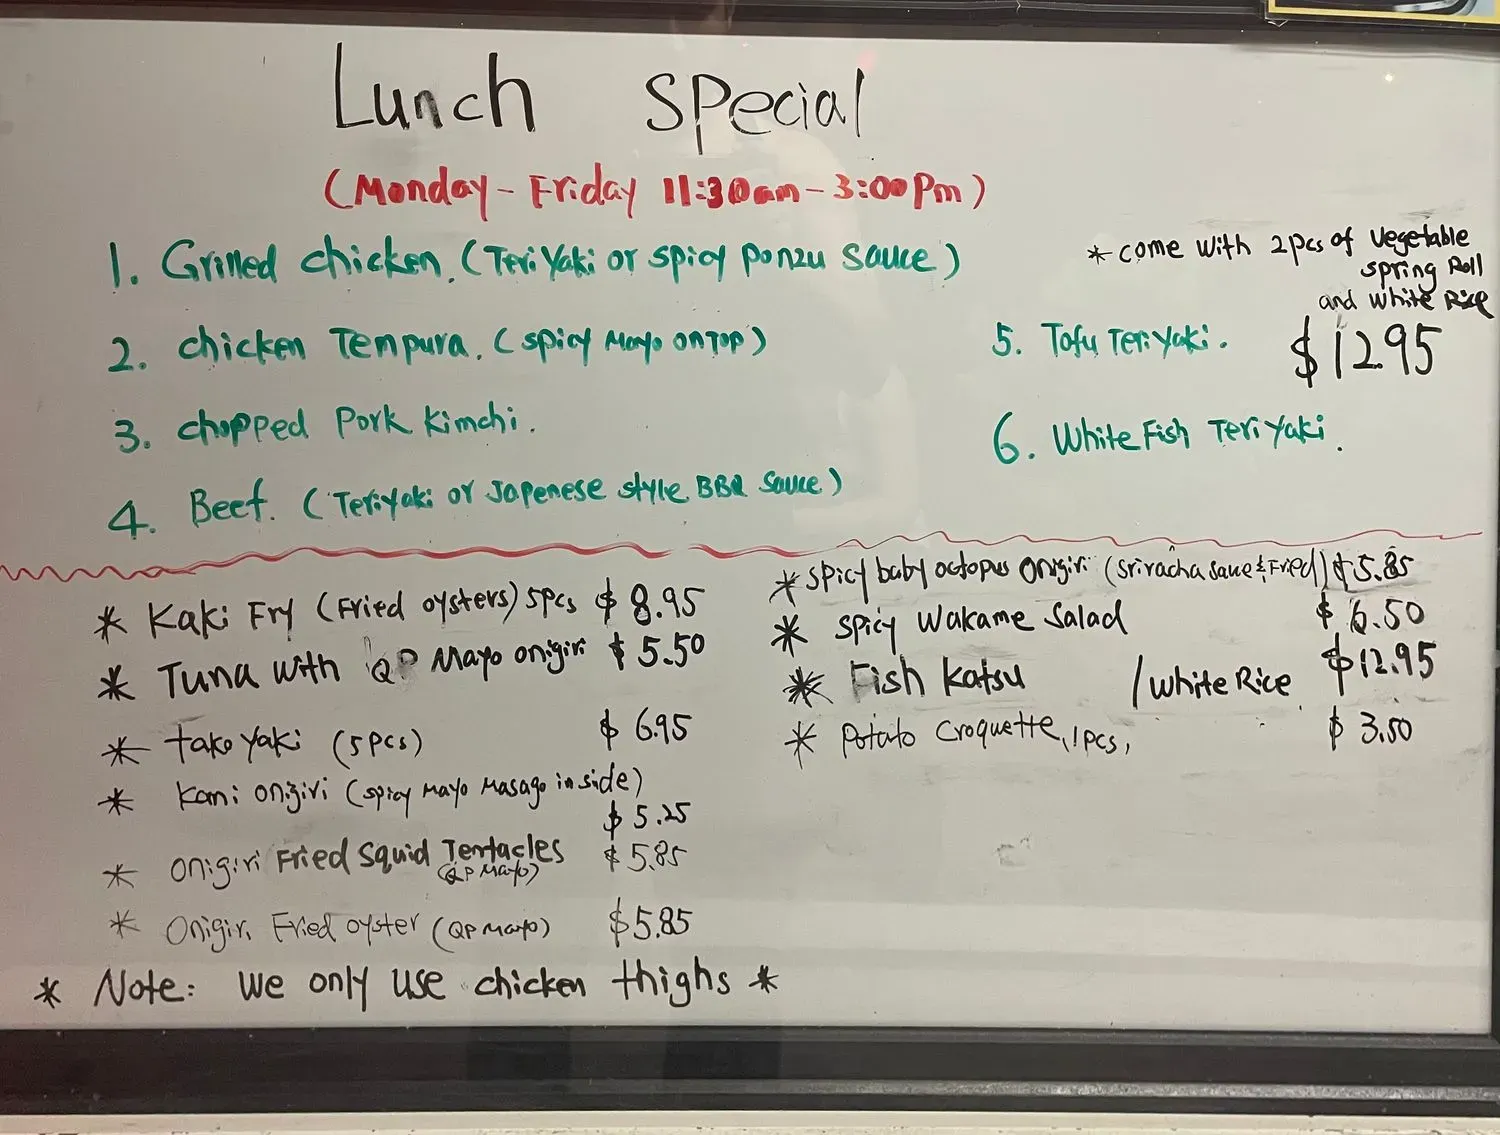 Lunch Special
(Monday - Friday 11:30am - 3:00pm)
1. Grilled chicken. (Teriyaki or spicy ponzu sauce)
* come with 2pcs of vegetable
spring Roll
and white Rice
$12.95
2. chicken Tempura. (spicy Mayo on Top)
3. chopped pork kimchi.
4. Beef. (Teriyaki or Japenese style BBQ sauce)
5. Tofu Teriyaki.
6. White Fish Teriyaki.
* Kaki Fry (Fried oysters) 5pcs $8.95
* Tuna with QP Mayo onigiri $5.50
* takoyaki (5pcs) $6.95
* Kani onigiri (spicy mayo Masago inside)
$5.25
* onigiri Fried squid Tentacles $5.85
(QP Mayo)
* Onigiri Fried oyster (QP mayo) $5.85
* spicy baby octopus onigiri (sriracha sauce & Fried) $5.85
* spicy wakame salad $6.50
* Fish katsu / white Rice $12.95
* potato croquette, 1pcs, $3.50
* Note: we only use chicken thighs *